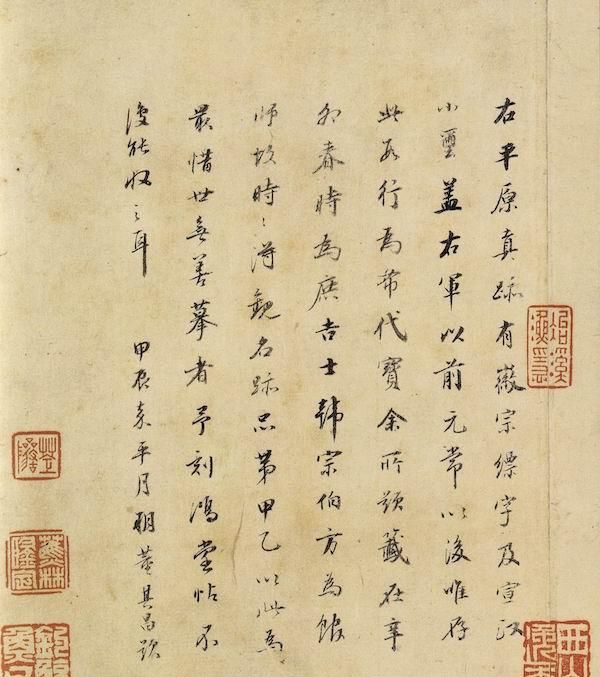 右平原真跡有徽宗縹字及宣政
小璽蓋右軍以前元常以後唯存
此數行為希代寶余所題籤在辛
卯春時為庶吉士韓宗伯方為館
師故時〻得觀名跡品第甲乙以此為
最惜世無善摹者予刻鴻堂帖不
復能收之耳 甲辰嘉平月朔董其昌題
蕉林